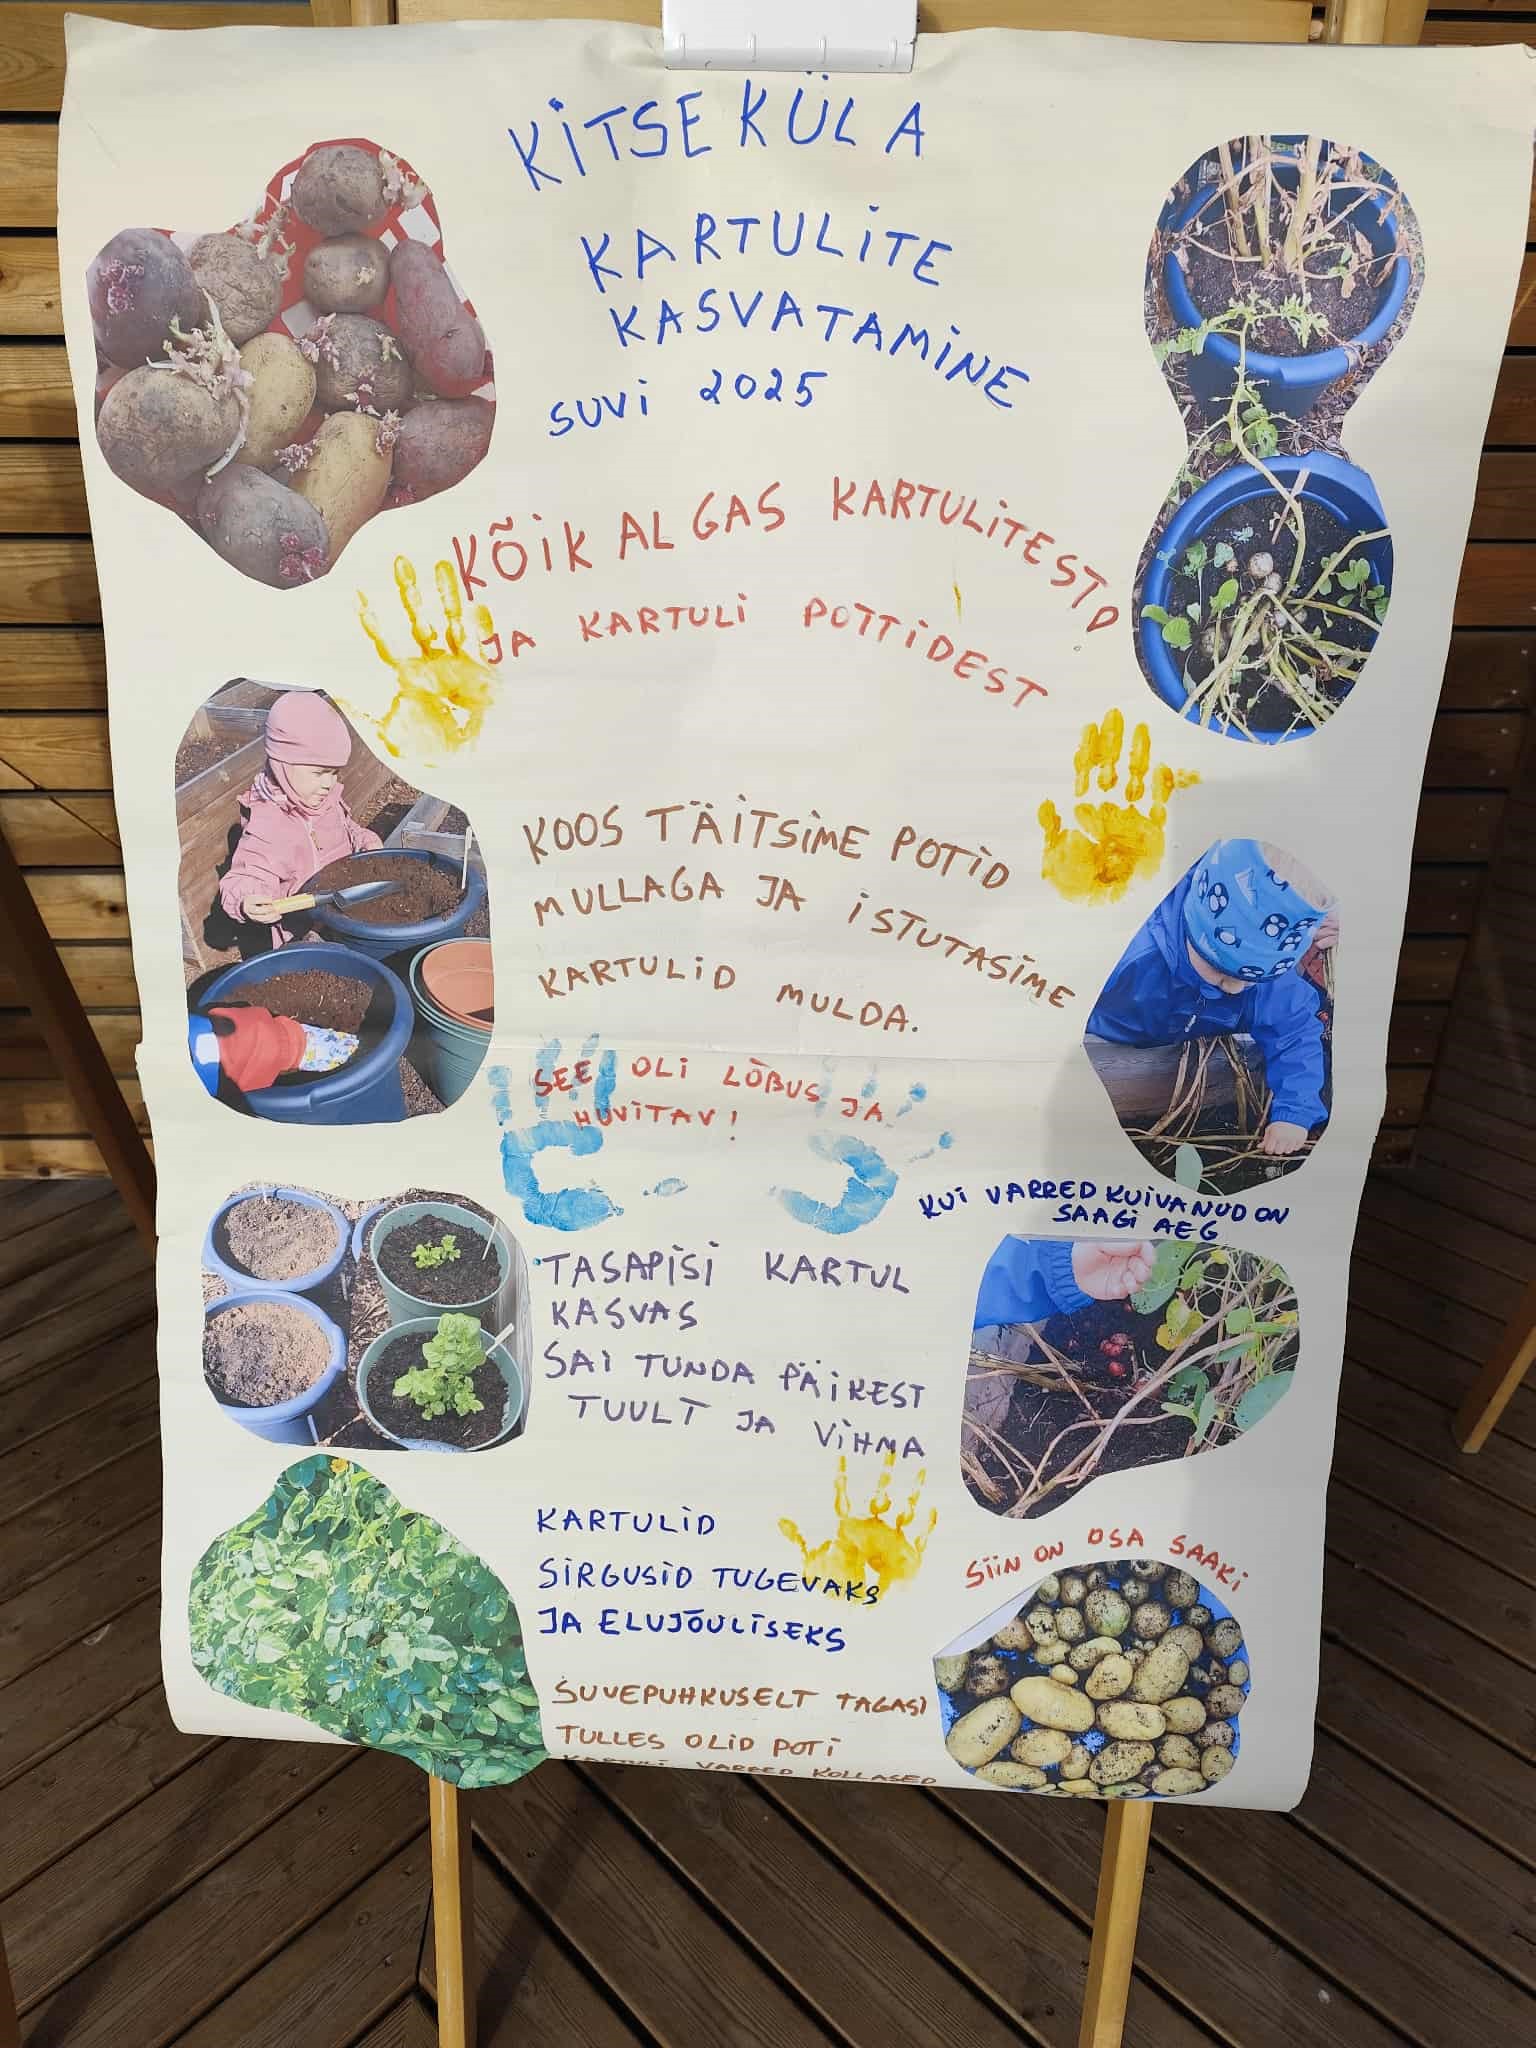 KITSEKÜLA
KARTULITE
KASVATAMINE
SUVI 2025
KÕIK ALGAS KARTULITEST
JA KARTULI POTTIDEST
KOOS TÄITSIME POTID
MULLAGA JA ISTUTASIME
KARTULID MULDA.
SEE OLI LÕBUS JA
HUVITAV!
KUI VARRED KUIVANUD ON
SAAGI AEG
TASAPISI KARTUL
KASVAS
SAI TUNDA PÄIKEST
TUULT JA VIHMA
KARTULID
SIRGUSID TUGEVAKS
JA ELUJÕULISEKS
SIIN ON OSA SAAKI
SUVEPUHKUSELT TAGASI
TULLES OLID POTI
KARTULI VARRED KOLLASED